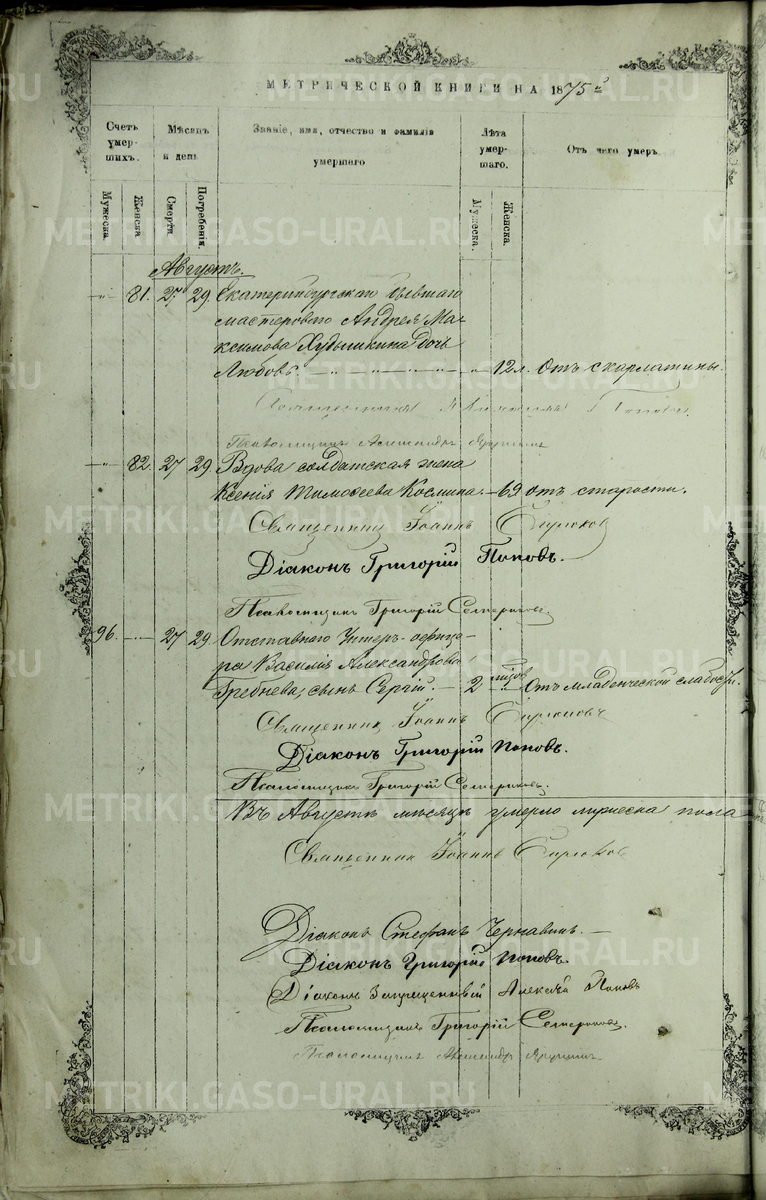 МЕТРИЧЕСКОЙ КНИГИ НА 1875й
Счет умерших.
Мѣсяцъ и день
Званіе, имя, отчество и фамилія умершаго
Лѣта умершаго.
Отъ чего умеръ
Мужеска.
Женска
Смерти.
Погребенія.
Мужеска.
Женска.
Августъ.
81. 27 29 Екатеринбургскаго бывшаго
мастероваго Андрея Мак
симова дочь
Любовь. 12 л. Отъ скарлатины.
Попов
Псаломщикъ Александръ
82. 27 29 Вдова солдатская жена
Ксенія Тимоѳеева Космина. — 69 отъ старости.
Священникъ Іоаннъ Бирюков
Діаконъ Григорій Поповъ.
Псаломщикъ Григорій
96. 27 29. Отставнаго Унтеръ-офице-
ра Василія Александрова
Гребнева, сынъ Сергій. — 2 Отъ младенческой слабости.
Священникъ Іоаннъ Бирюковъ
Діаконъ Григорій Поповъ.
Псаломщикъ Григорій
Въ Августѣ мѣсяцѣ умерло мужеска пола
Священникъ Іоаннъ Бирюков
Діаконъ Стефанъ Чернавинъ. —
Діаконъ Григорій Поповъ.
Діаконъ Запрещенный Алексѣй Попов
Псаломщикъ Григорій
Псаломщикъ Александръ
METRIKI.GASO-URAL.RU